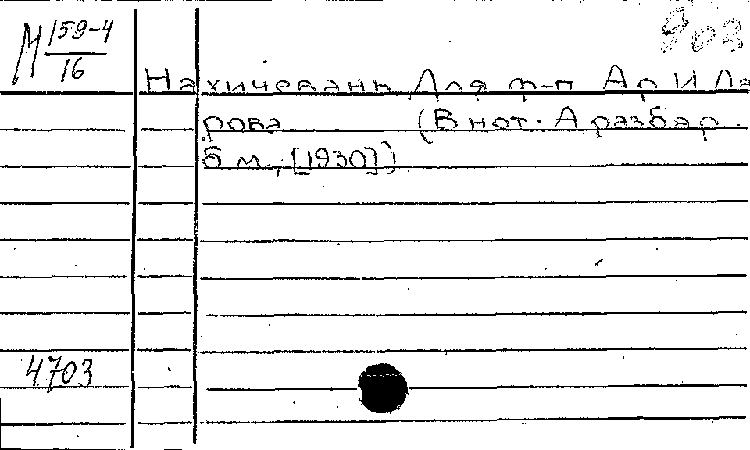 М 159-4
16
903
Нахичевань Для ф-п Ар И Ла
рова (В нот. Аразбар.
б м., [1930])
4703